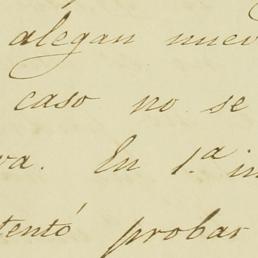 alegan nuev
caso no se
va. En 1.ª in
tentó probar